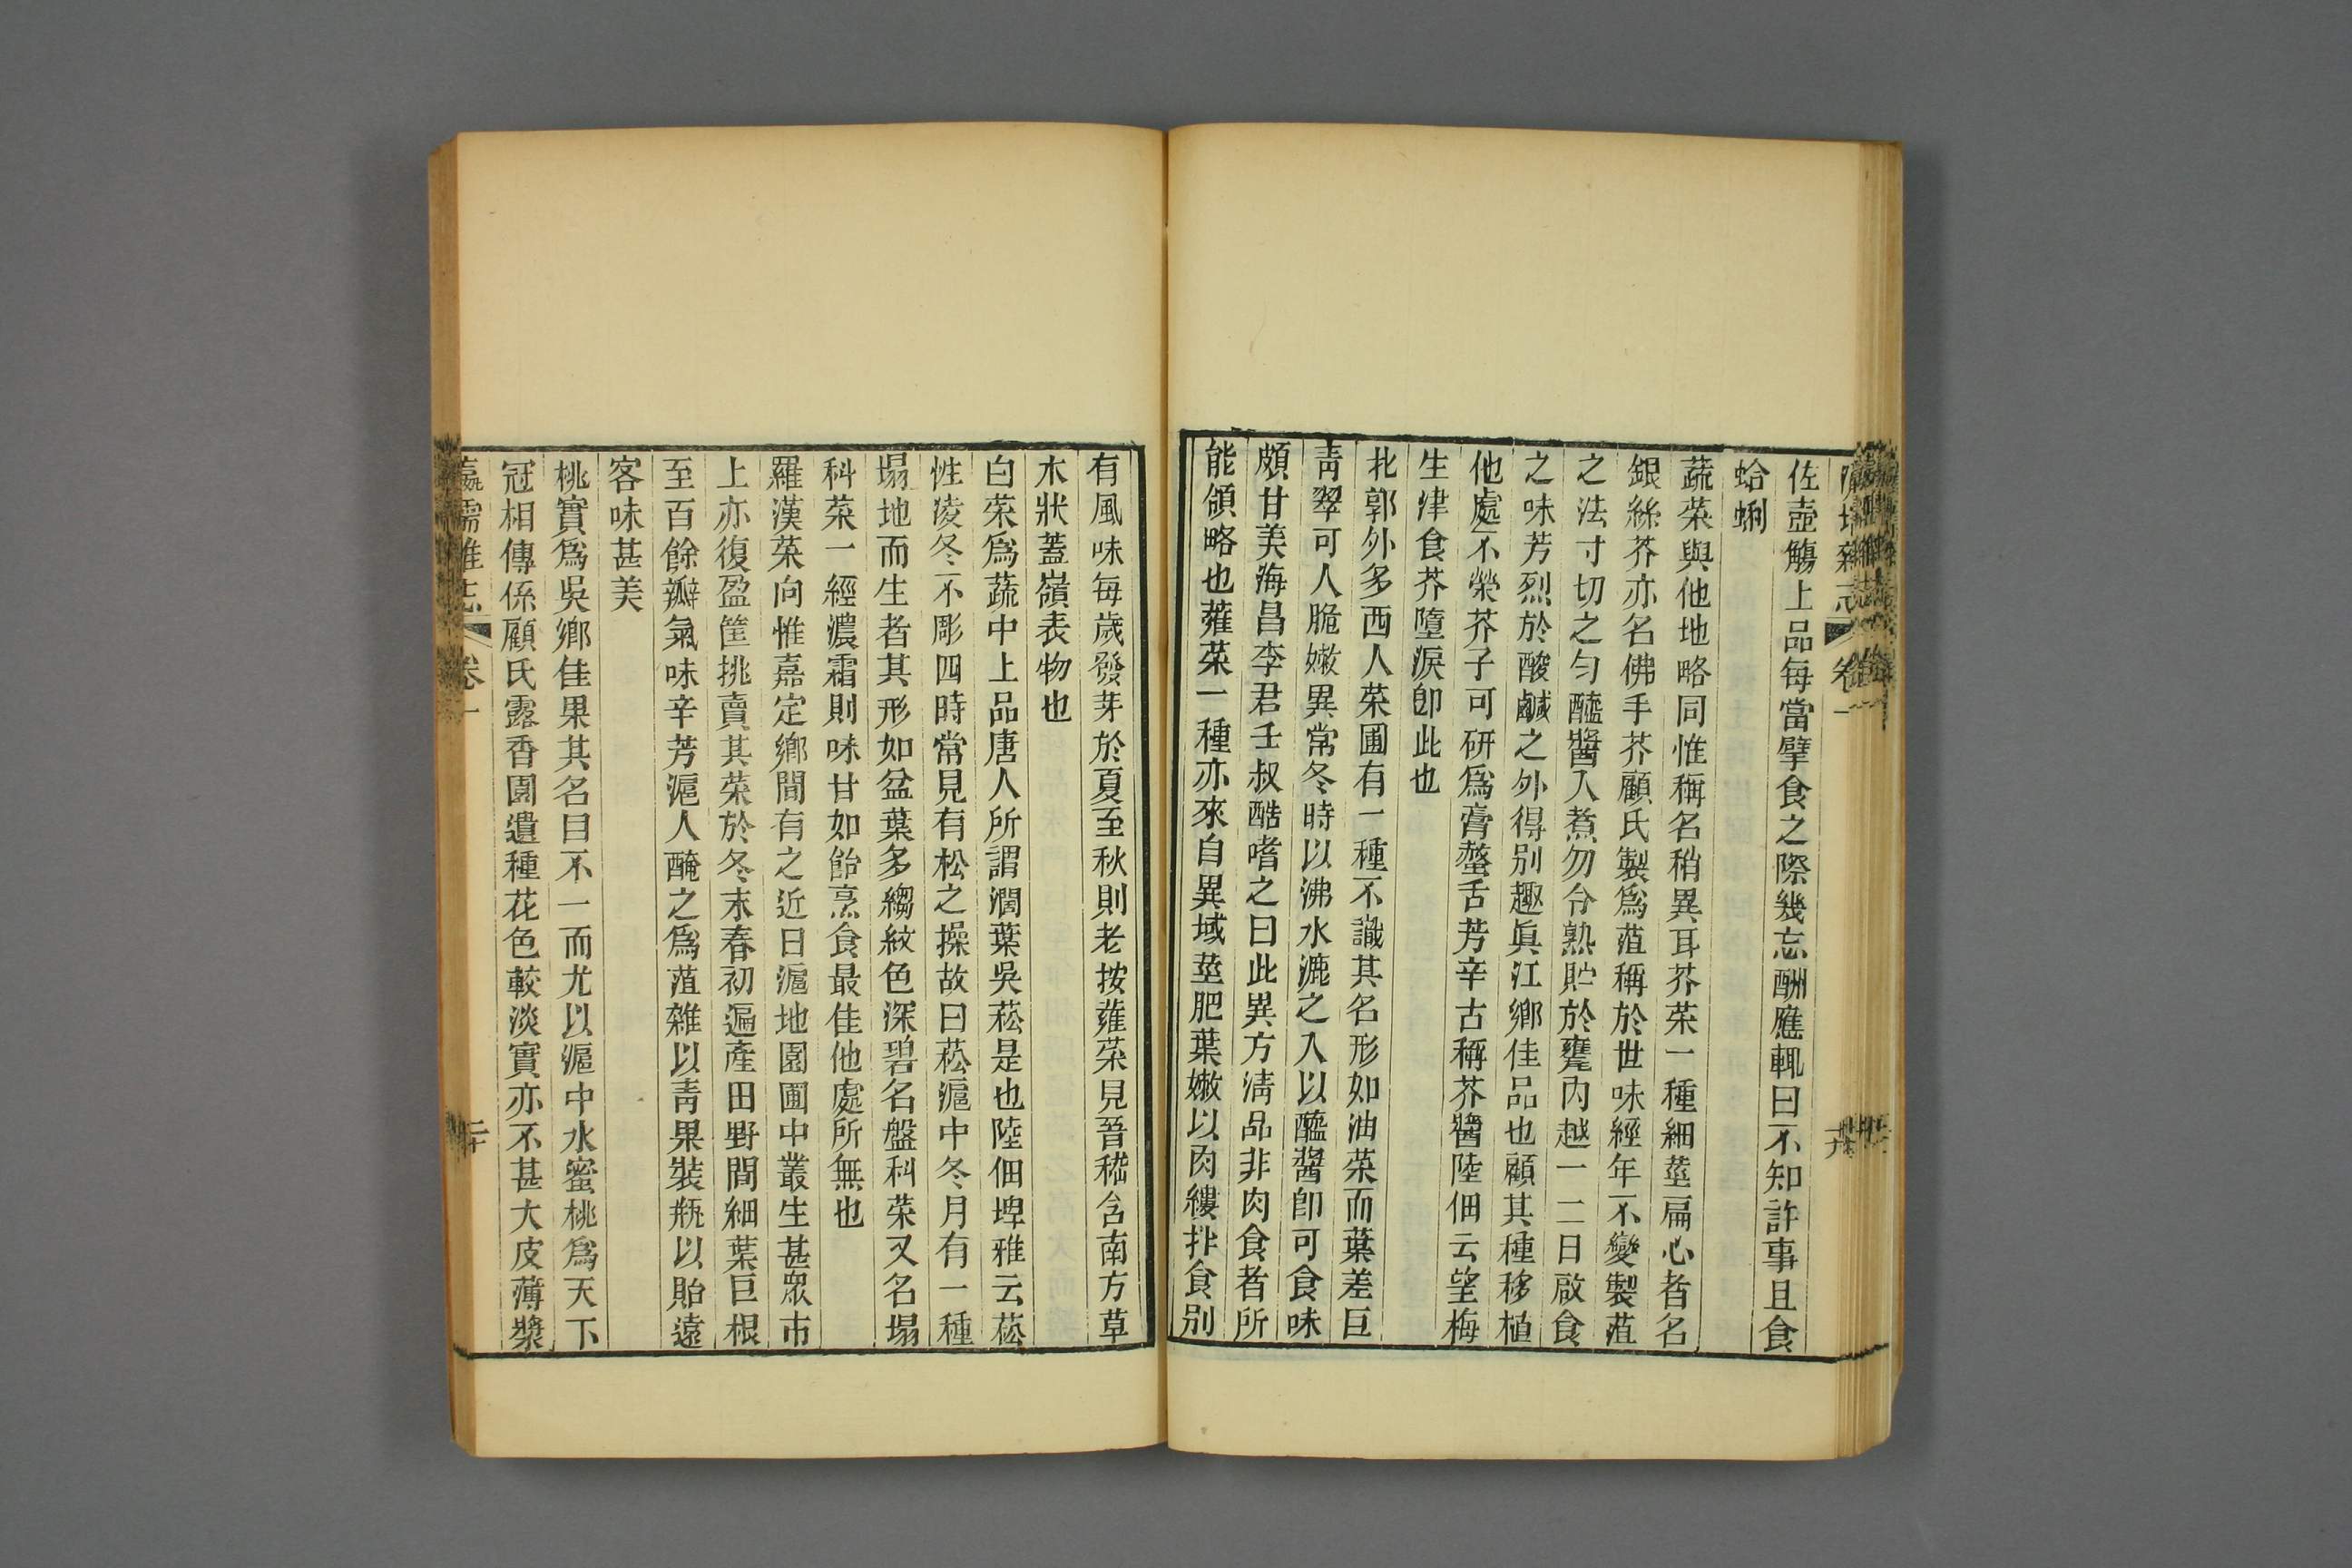 卷一
佐壺觴上品每當擘食之際幾忘酬應輒曰不知許事且食
蛤蜊
蔬菜與他地略同惟稱名稍異耳芥菜一種細莖扁心者名
銀絲芥亦名佛手芥顧氏製爲菹稱於世味經年不變製菹
之法寸切之勻醯醬入煮勿令熟貯於甕內越一二日啟食
之味芳烈於酸鹹之外得别趣眞江鄉佳品也顧其種移植
他處不榮芥子可研爲膏螫舌芳辛古稱芥醬陸佃云望梅
生津食芥墮淚卽此也
北郭外多西人菜圃有一種不識其名形如油菜而葉差巨
青翠可人脆嫩異常冬時以沸水漉之入以醯醬卽可食味
頗甘美海昌李君壬叔酷嗜之曰此異方淸品非肉食者所
能領略也蕹菜一種亦來自異域莖肥葉嫩以肉縷拌食别
有風味每歲發芽於夏至秋則老按蕹菜見晉嵇含南方草
木狀蓋嶺表物也
白菜爲蔬中上品唐人所謂濶葉吳菘是也陸佃埤雅云菘
性淩冬不彫四時常見有松之操故曰菘滬中冬月有一種
塌地而生者其形如盆葉多縐紋色深碧名盤科菜又名塌
科菜一經濃霜則味甘如飴烹食最佳他處所無也
羅漢菜向惟嘉定鄉間有之近日滬地園圃中叢生甚衆市
上亦復盈筐挑賣其菜於冬末春初遍產田野間細葉巨根
至百餘瓣氣味辛芳滬人醃之爲菹雜以青果裝瓶以貽遠
客味甚美
桃實爲吳鄉佳果其名目不一而尤以滬中水蜜桃爲天下
冠相傳係顧氏露香園遺種花色較淡實亦不甚大皮薄漿
瀛壖雜志 卷一 二十